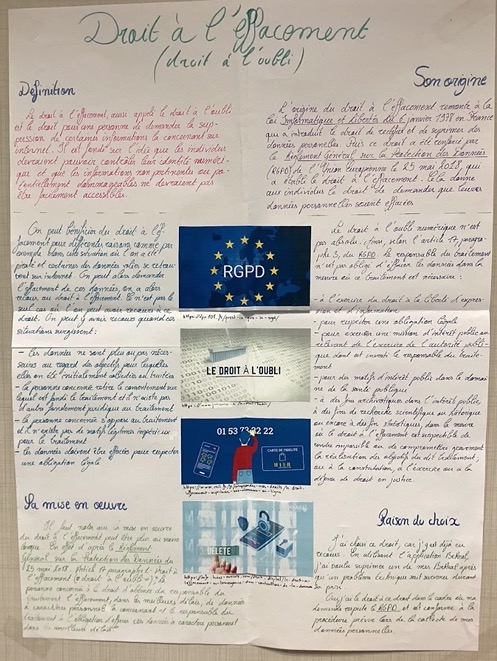 Droit à l'effacement
(droit à l'oubli)
Définition
Le droit à l'effacement, aussi appelé le droit à l'oubli
est le droit pour une personne de demander la sup-
pression de certaines informations la concernant sur
internet. Il est fondé sur l'idée que les individus
devraient pouvoir contrôler leur identité numéri-
que et que les informations non pertinentes ou po-
tentiellement dommageables ne devraient pas
être facilement accessibles.
Son origine
L'origine du droit à l'effacement remonte à la
loi Informatique et Libertés du 6 janvier 1978 en France
qui a introduit le droit de rectifier et de supprimer des
données personnelles. Puis ce droit a été renforcé par
le Règlement Général sur la Protection des Données
(RGPD) de l'Union Européenne le 25 mai 2018, qui
a établi le droit à l'effacement. Cela donne
aux individus le droit de demander que leurs
données personnelles soient effacées.
On peut bénéficier du droit à l'ef-
facement pour différentes raisons, comme par
exemple dans une situation où l'on a été
piraté et certaines de données
sur internet. On peut alors demander
l'effacement de ces données, on a alors
recours au droit à l'effacement. Ce n'est pas le
seul cas où l'on peut avoir recours à ce
droit. On peut y avoir recours quand ces
situations surgissent :
- Les données ne sont plus ou pas néces-
saires au regard des objectifs pour lesquelles
elles ont été initialement collectées ou traitées
- la personne concernée retire le consentement sur
lequel est fondé le traitement et il n'existe pas
d'autre fondement juridique au traitement
- la personne concernée s'oppose au traitement
et il n'existe pas de motif légitime impérieux
pour le traitement
- les données doivent être effacées pour respecter
une obligation légale
RGPD
LE DROIT À L'OUBLI
01 53 73 22 22
CARTE DE FIDELITE
DELETE
Le droit à l'oubli numérique n'est
pas absolu. Ainsi, selon l'article 17, paragra-
phe 3, du RGPD, le responsable du traitement
n'est pas obligé d'effacer les données dans la
mesure où ce traitement est nécessaire :
- à l'exercice du droit à la liberté d'expres-
sion et d'information
- pour respecter une obligation légale
- pour exécuter une mission d'intérêt public ou
relevant de l'exercice de l'autorité publi-
que dont est investi le responsable du traite-
ment
- pour des motifs d'intérêt public dans le domaine
de la santé publique
- à des fins archivistiques dans l'intérêt public,
à des fins de recherche scientifique ou historique
ou encore à des fins statistiques, dans la mesure
où le droit à l'effacement est susceptible de
rendre impossible ou de compromettre gravement
la réalisation des objectifs du dit traitement,
ou à la constatation, à l'exercice ou à la
défense de droit en justice.
Sa mise en œuvre
Il faut noter que la mise en œuvre
du droit à l'effacement peut être plus ou moins
longue. En effet d'après le Règlement
Général sur la Protection des Données du
25 mai 2018, Article 17, paragraphe 1, Droit à
l'effacement («droit à l'oubli») : la personne
concernée a le droit d'obtenir du responsable du
traitement l'effacement, dans les meilleurs délais, de données
à caractère personnel la concernant et le responsable du
traitement a l'obligation d'effacer ces données à caractère personnel
dans les meilleurs délais
Raison du choix
J'ai choisi ce droit, car j'y ai déjà eu
recours. En utilisant l'application
après
un problème technique
Ainsi j'ai le droit à ce droit dans le cadre où ma
demande respecte le RGPD et est conforme à la
procédure prévue lors de la collecte de mes
données personnelles.